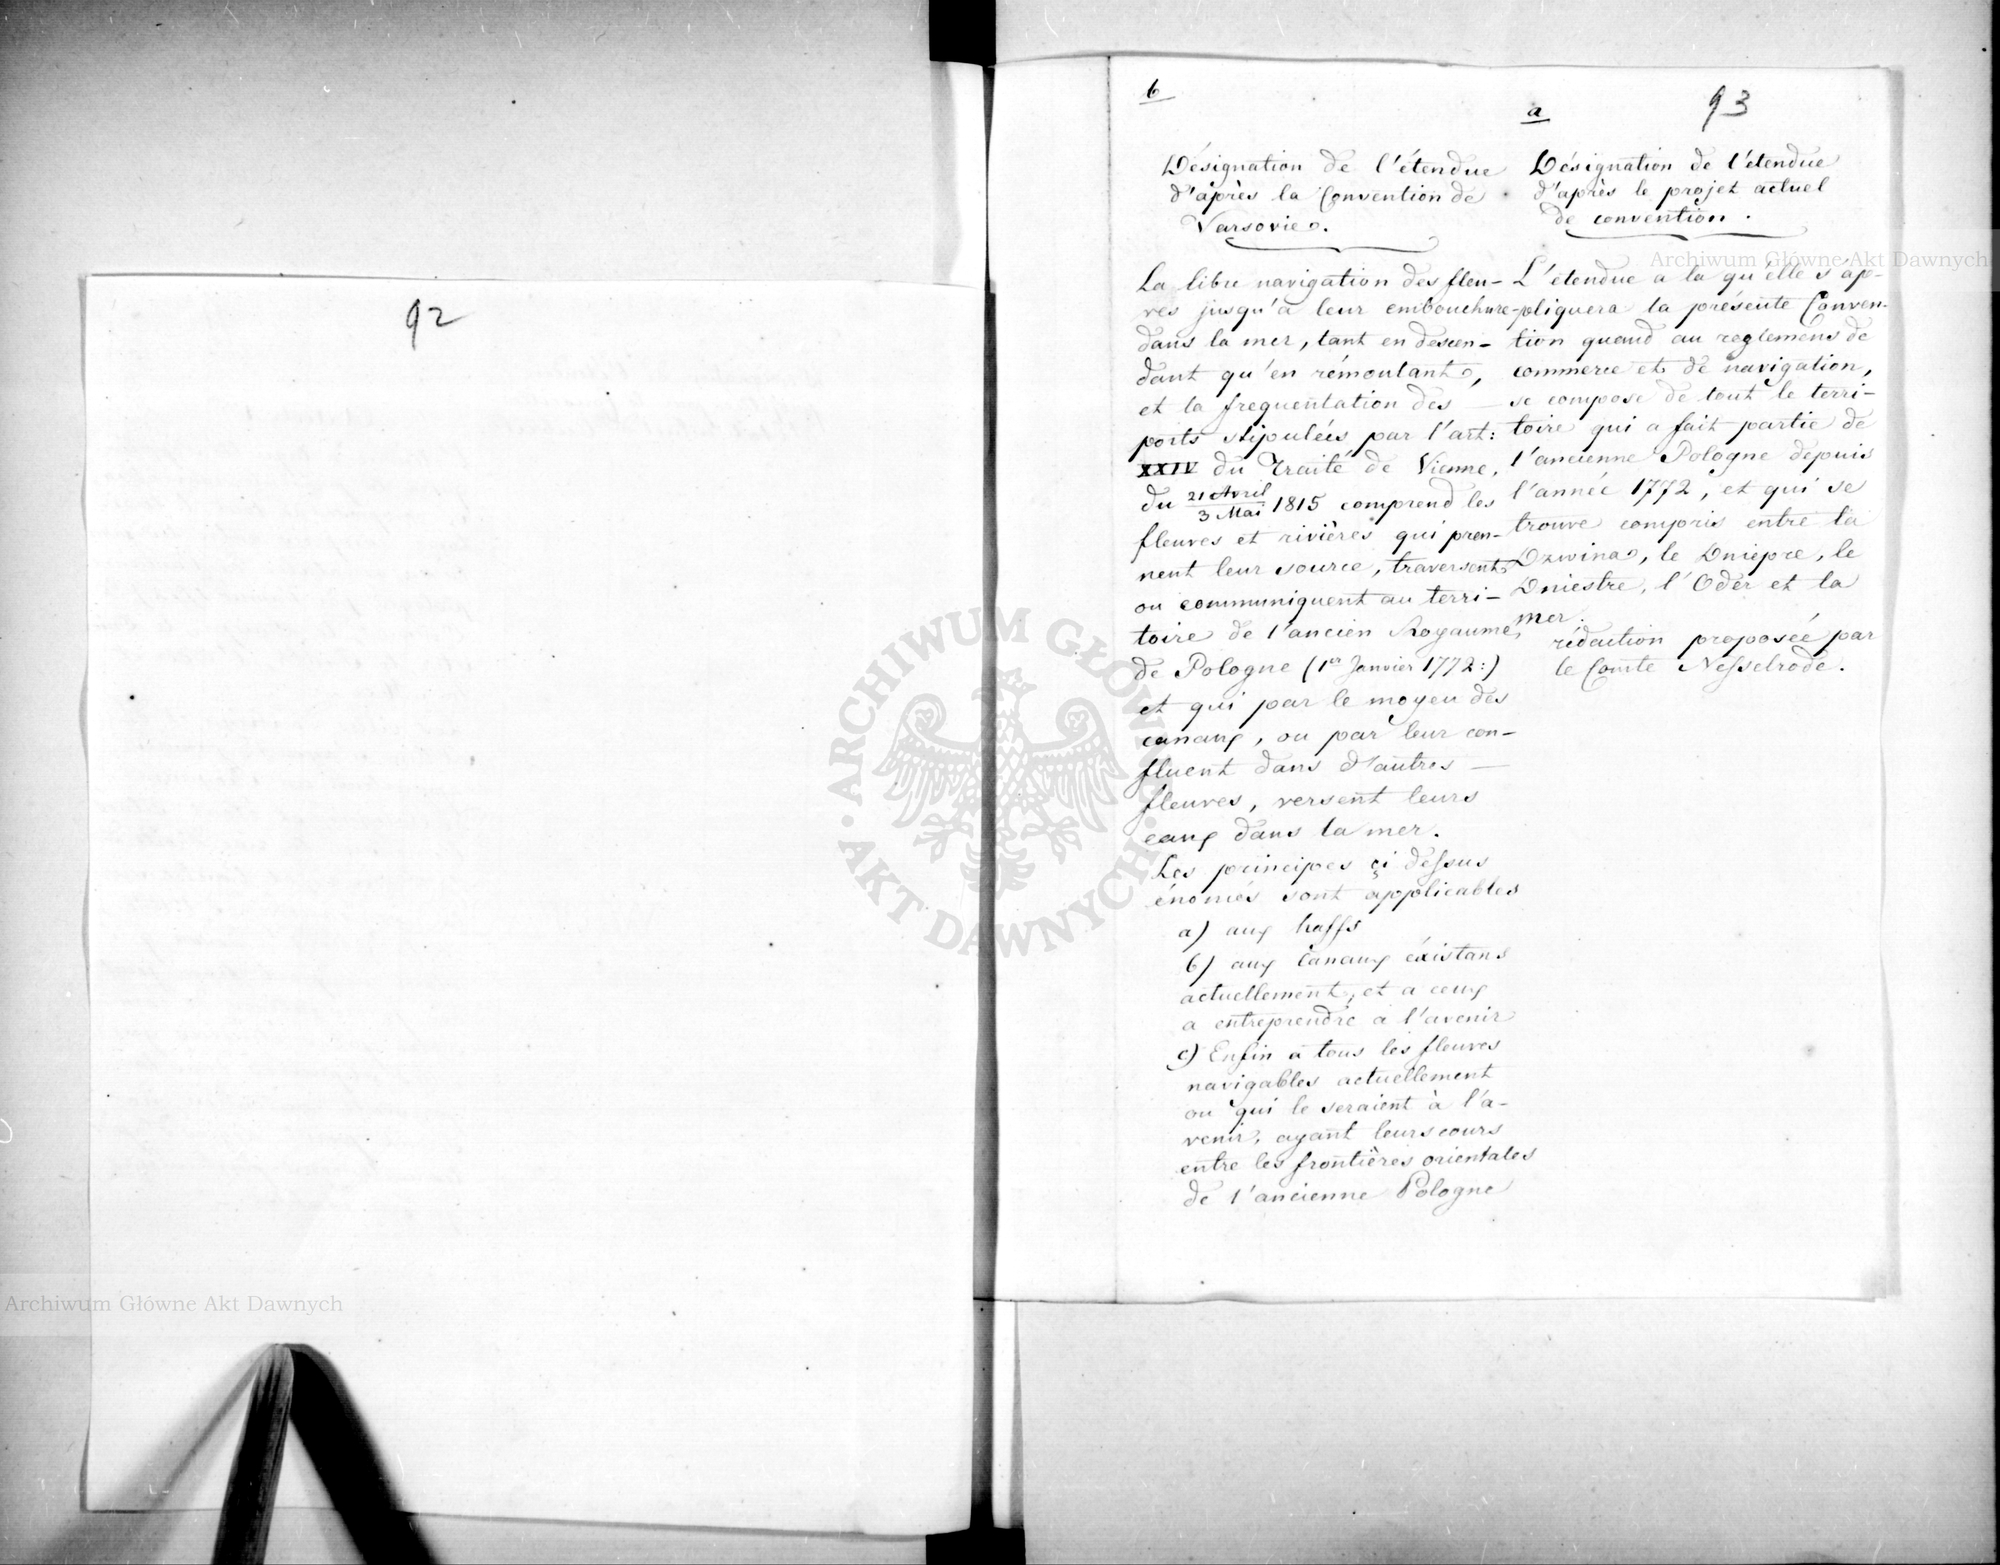 92
93
b
Désignation de l'étendue
d'après la Convention de
Varsovie.
La libre navigation des fleu-
ves jusqu'à leur embouchure
dans la mer, tant en descen-
dant qu'en rémontant,
et la frequentation des
ports stipulées par l'art:
XXIV du Traité de Vienne,
du 21 Avril / 3 Mai 1815 comprend les
fleuves et rivières qui pren-
nent leur source, traversent
ou communiquent au terri-
toire de l'ancien Royaume
de Pologne (1er Janvier 1772:)
et qui par le moyen des
canaux, ou par leur con-
fluent dans d'autres
fleuves, versent leurs
eaux dans la mer.
Les principes çi dessus
énomés sont applicables
a) aux haffs
b) aux Canaux éxistans
actuellement, et a ceux
a entreprendre a l'avenir
c) Enfin a tous les fleuves
navigables actuellement
ou qui le seraient à l'a-
venir, ayant leurs cours
entre les frontières orientales
de l'ancienne Pologne
a
Désignation de l'étendue
d'après le projet actuel
de convention.
L'étendue a la qu'elle s'ap-
pliquera la présente Conven-
tion quand au reglemens de
commerce et de navigation,
se compose de tout le terri-
toire qui a fait partie de
l'ancienne Pologne depuis
l'année 1772, et qui se
trouve compris entre la
Dzwina, le Dniepre, le
Dniestre, l'Oder et la
mer.
rédaction proposée par
le Comte Nesselrode.
Archiwum Główne Akt Dawnych
Archiwum Główne Akt Dawnych
ARCHIWUM GŁÓWNE
AKT DAWNYCH